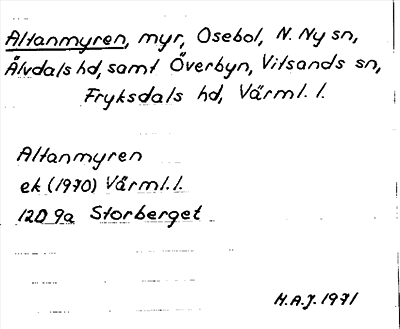 Altanmyren, myr, Osebol, N. Ny sn,
Älvdals hd, samt Överbyn, Vitsands sn,
Fryksdals hd, Värml. l.
Altanmyren
ek (1970) Värml. l.
12D 9a Storberget
H.A.J. 1971